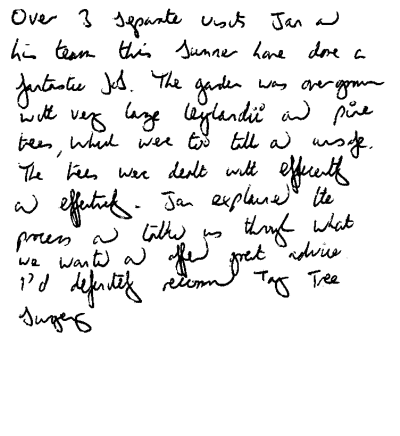 Over 3 separate visits Jan and
his team this summer have done a
fantastic job. The garden was overgrown
with very large leylandii and pine
trees, which were too tall and unsafe.
The trees were dealt with efficiently
and effectively. Jan explained the
process and talked us through what
we wanted and offered great advice.
I'd definitely recommend Tree
Surgery